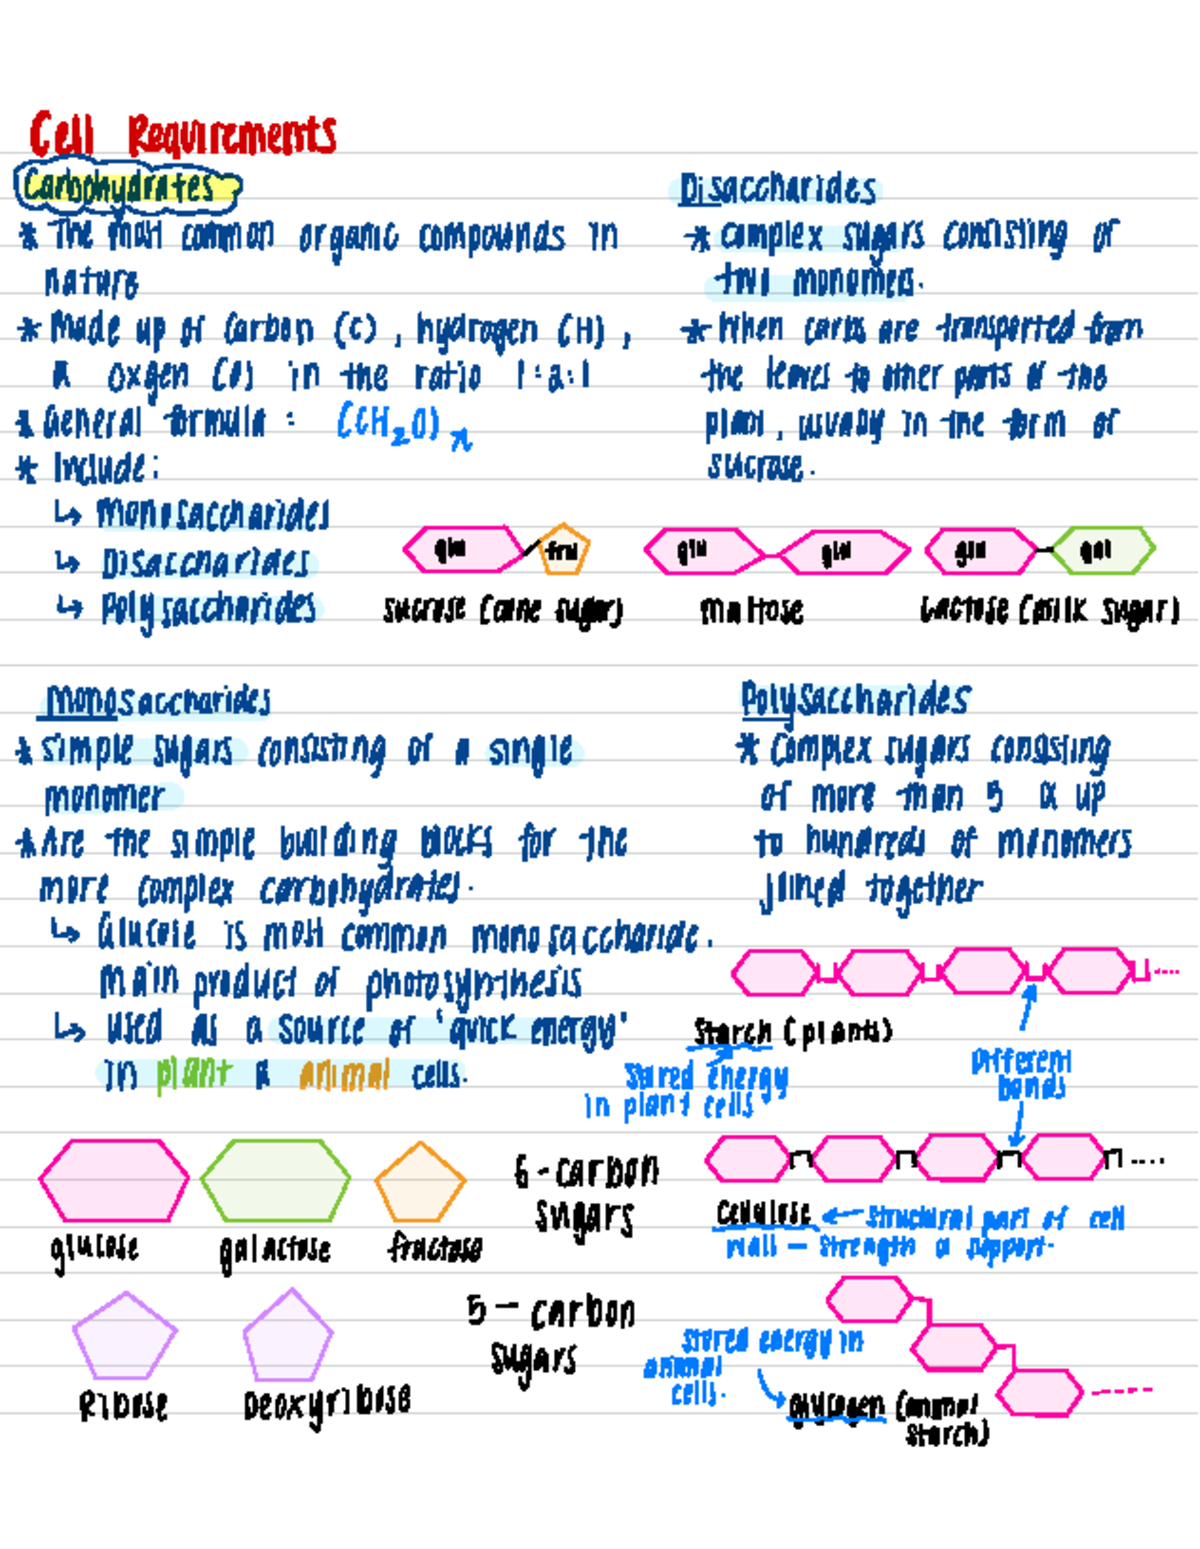 Cell Requirements
Carbohydrates
* The most common organic compounds in
nature
* Made up of Carbon (C), hydrogen (H),
& oxgen (O) in the ratio 1:2:1
* General formula : (CH2O)n
* Include:
↳ Monosaccharides
↳ Disaccharides
↳ Polysaccharides
Disaccharides
* complex sugars consisting of
two monomers.
* When carbs are transported from
the leaves to other parts of the
plant, usually in the form of
sucrose.
glu fru
sucrose (cane sugar)
glu glu
maltose
glu gal
Lactose (milk sugar)
Monosaccharides
* simple sugars consisting of a single
monomer
* Are the simple building blocks for the
more complex carbohydrates.
↳ Glucose is most common monosaccharide.
main product of photosynthesis
↳ used as a source of 'quick energy'
in plant & animal cells.
glucose galactose fructose
6-carbon
sugars
Ribose Deoxyribose
5-carbon
sugars
Polysaccharides
* Complex sugars consisting
of more than 5 & up
to hundreds of monomers
joined together
Starch (plants)
Stored energy
in plant cells
Different
bonds
Cellulose ← structural part of cell
wall - strength & support.
stored energy in
animal
cells.
glycogen (animal
starch)